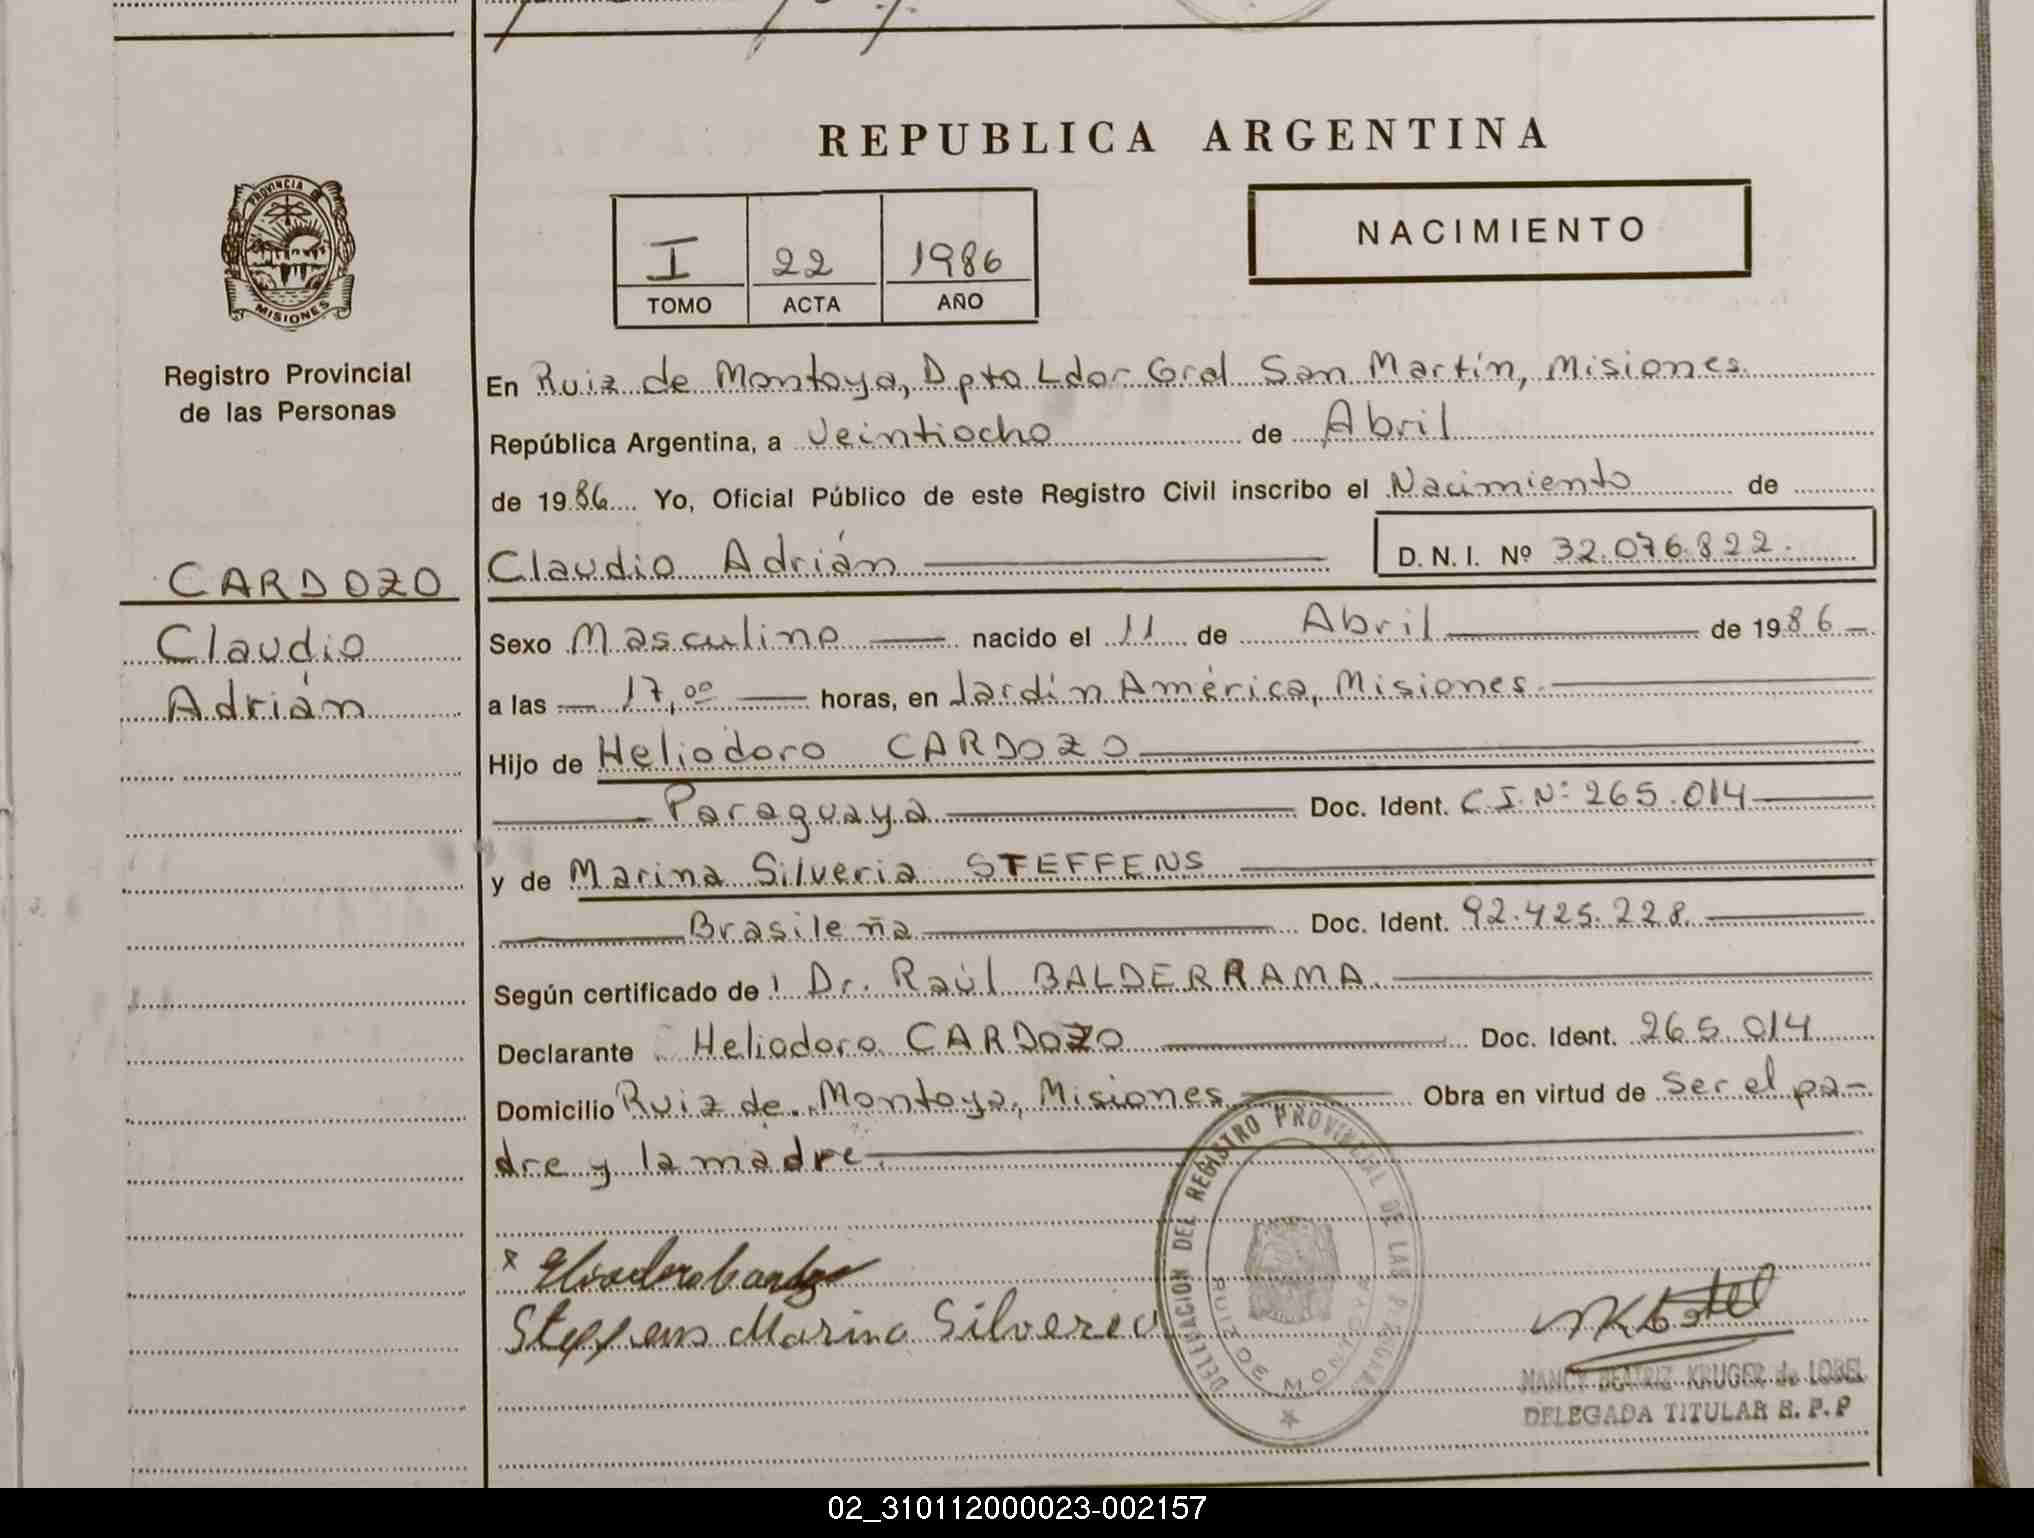 REPUBLICA ARGENTINA
PROVINCIA DE
MISIONES
Registro Provincial
de las Personas
I 22 1986
TOMO ACTA AÑO
NACIMIENTO
En Ruiz de Montoya, Dpto Ldor Gral San Martín, Misiones
República Argentina, a Veintiocho de Abril
de 1986 Yo, Oficial Público de este Registro Civil inscribo el Nacimiento de
CARDOZO
Claudio
Adrián
Claudio Adrián D. N. I. Nº 32.076.822.
Sexo Masculino nacido el 11 de Abril de 1986
a las 17,00 horas, en Jardín América, Misiones.
Hijo de Heliodoro CARDOZO
Paraguaya Doc. Ident. C.I. Nº 265.014
y de Marina Silveria STEFFENS
Brasileña Doc. Ident. 92.425.228.
Según certificado de Dr. Raúl BALDERRAMA.
Declarante Heliodoro CARDOZO Doc. Ident. 265.014
Domicilio Ruiz de Montoya, Misiones Obra en virtud de ser el pa-
dre y la madre.
DELEGACION DEL REGISTRO PROVINCIAL DE LAS PERSONAS
RUIZ DE MONTOYA
x Heliodoro Cardozo
Steffens Marina Silveria
NANCY BEATRIZ KRUGER de LOBEL
DELEGADA TITULAR R. P. P
02_310112000023-002157